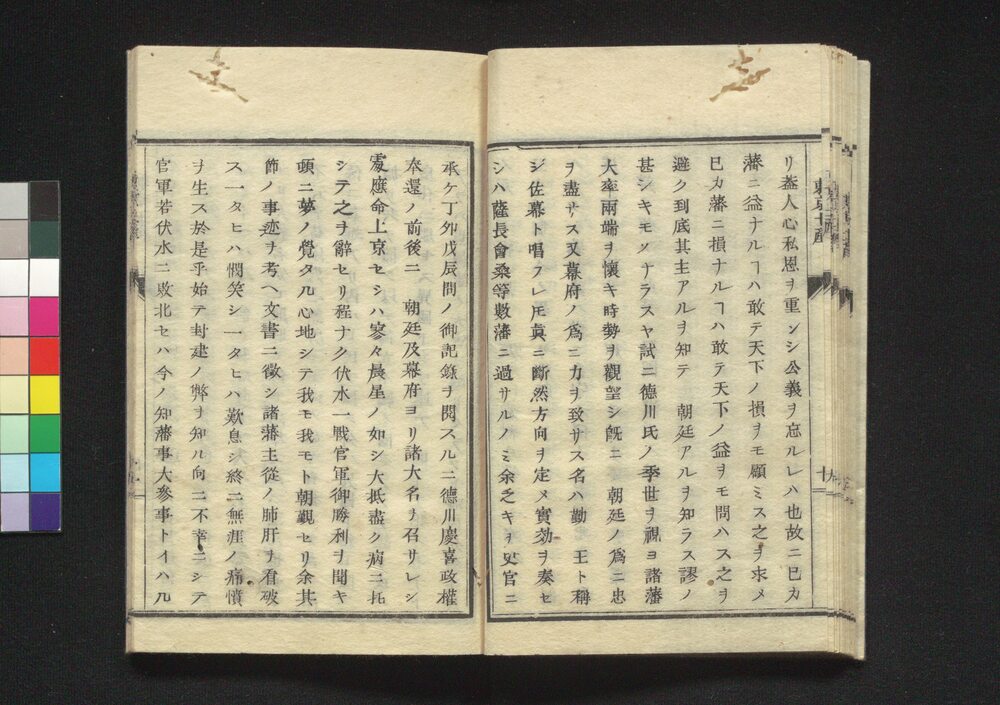 リ蓋人心私恩ヲ重ンシ公義ヲ忘ルレハ也故ニ已カ
藩ニ益ナルヿハ敢テ天下ノ損ヲモ顧ミス之ヲ求メ
已カ藩ニ損ナルヿハ敢テ天下ノ益ヲモ問ハス之ヲ
避ク到底其主アルヲ知テ　朝廷アルヲ知ラス謬ノ
甚シキモノナラスヤ試ニ德川氏ノ季世ヲ視ヨ諸藩
大率兩端ヲ懷キ時勢ヲ觀望シ旣ニ　朝廷ノ爲ニ忠
ヲ盡サス又幕府ノ爲ニ力ヲ致サス名ハ勤　王ト稱
シ佐幕ト唱フレ𪜈眞ニ斷然方向ヲ定メ實効ヲ奏セ
シハ薩長會桑等數藩ニ過サルノミ余乏キヲ史官ニ
承ケ丁卯戊辰間ノ御記錄ヲ閲スルニ德川慶喜政權
奉還ノ前後ニ　朝廷及幕府ヨリ諸大名ヲ召サレシ
處應命上京セシハ寥々晨星ノ如シ大抵盡ク病ニ托
シテ之ヲ辭セリ程ナク伏水一戰官軍御勝利ヲ聞キ
頓ニ夢ノ覺タル心地シテ我モ我モト朝覲セリ余其
節ノ事迹ヲ考ヘ文書ニ徵シ諸藩主從ノ肺肝ヲ看破
ス一タヒハ憫笑シ一タヒハ歎息シ終ニ無涯ノ痛憤
ヲ生ス於是乎始テ封建ノ弊ヲ知ル向ニ不幸ニシテ
官軍若伏水ニ敗北セハ今ノ知藩事大參事トイハル